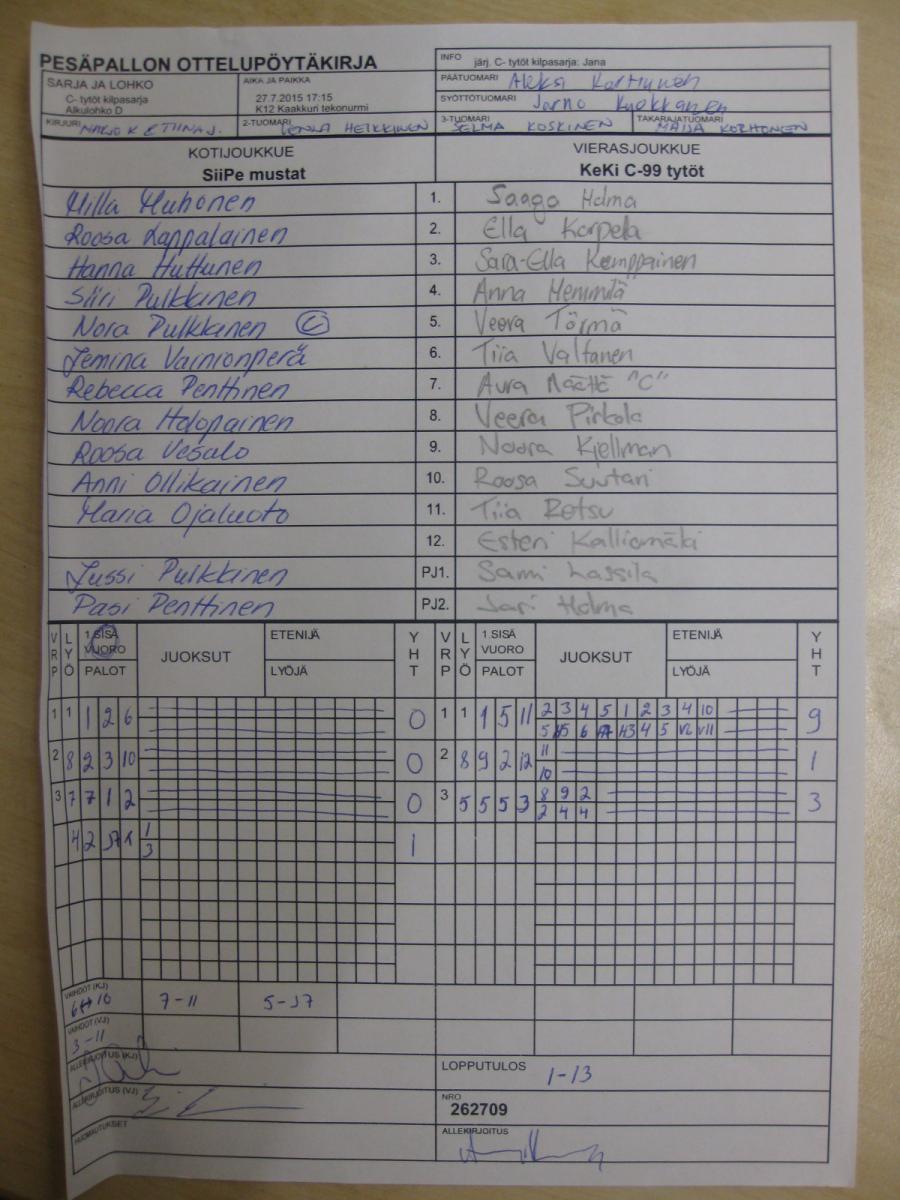 PESÄPALLON OTTELUPÖYTÄKIRJA
INFO järj. C- tytöt kilpasarja: Jana
SARJA JA LOHKO
C- tytöt kilpasarja
Alkulohko D
AIKA JA PAIKKA
27.7.2015 17:15
K12 Kaakkuri tekonurmi
PÄÄTUOMARI Aleksi Korhonen
SYÖTTÖTUOMARI Jarno Kuokkanen
KIRJURI
2-TUOMARI VENLA HEIKKINEN
3-TUOMARI SELMA KOSKINEN
TAKARAJATUOMARI MAIJA KORHONEN
KOTIJOUKKUE VIERASJOUKKUE
SiiPe mustat KeKi C-99 tytöt
Milla Muhonen 1. Saaga Holma
Roosa Lappalainen 2. Ella Karpela
Hanna Huttunen 3. Sara-Ella Kemppainen
Siiri Pulkkinen 4. Anna Hemmilä
Nora Pulkkanen C 5. Veera Törmä
Jemina Vainionperä 6. Tiia Valtanen
Rebecca Penttinen 7. Aura Määttä "C"
Noora Holopainen 8. Veera Pirkola
Roosa Vesalo 9. Noora Kjellman
Anni Ollikainen 10. Roosa Suutari
Maria Ojaluoto 11. Tiia Retsu
12. Esteri Kalliomäki
Jussi Pulkkinen PJ1. Sami Lassila
Pasi Penttinen PJ2. Jari Holma
VRP LYÖ 1.SISÄ VUORO PALOT JUOKSUT ETENIJÄ LYÖJÄ YHT VRP LYÖ 1.SISÄ VUORO PALOT JUOKSUT ETENIJÄ LYÖJÄ YHT
1 1 1 2 6 0 1 1 1 5 11 2 3 4 5 1 2 3 4 10 9
6 H3 4 5 V2 V11
2 8 2 3 10 0 2 8 9 2 12 11 1
10
3 7 7 1 2 0 3 5 5 5 3 8 9 2 3
2 4 4
4 2 1 1
3
VAIHDOT (KJ)
7-11 5-J7
VAIHDOT (VJ)
3-11
ALLEKIRJOITUS (KJ)
LOPPUTULOS 1-13
ALLEKIRJOITUS (VJ)
NRO
262709
HUOMAUTUKSET
ALLEKIRJOITUS